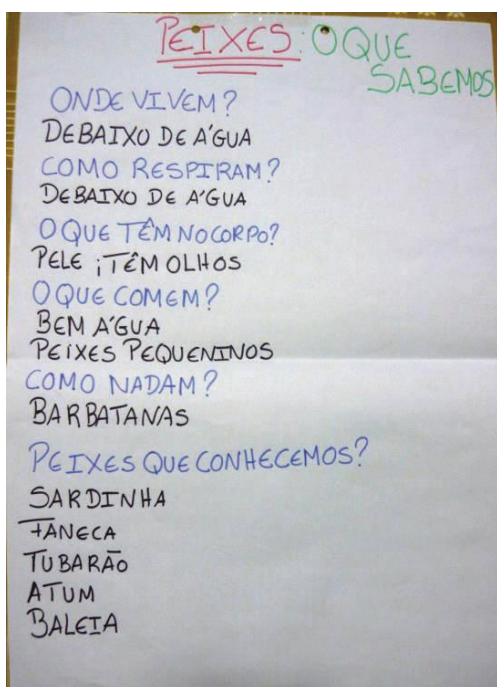 PEIXES: O QUE
SABEMOS
ONDE VIVEM?
DEBAIXO DE ÁGUA
COMO RESPIRAM?
DEBAIXO DE ÁGUA
O QUE TÊM NO CORPO?
PELE ; TÊM OLHOS
O QUE COMEM?
BEM ÁGUA
PEIXES PEQUENINOS
COMO NADAM?
BARBATANAS
PEIXES QUE CONHECEMOS?
SARDINHA
FANECA
TUBARÃO
ATUM
BALEIA